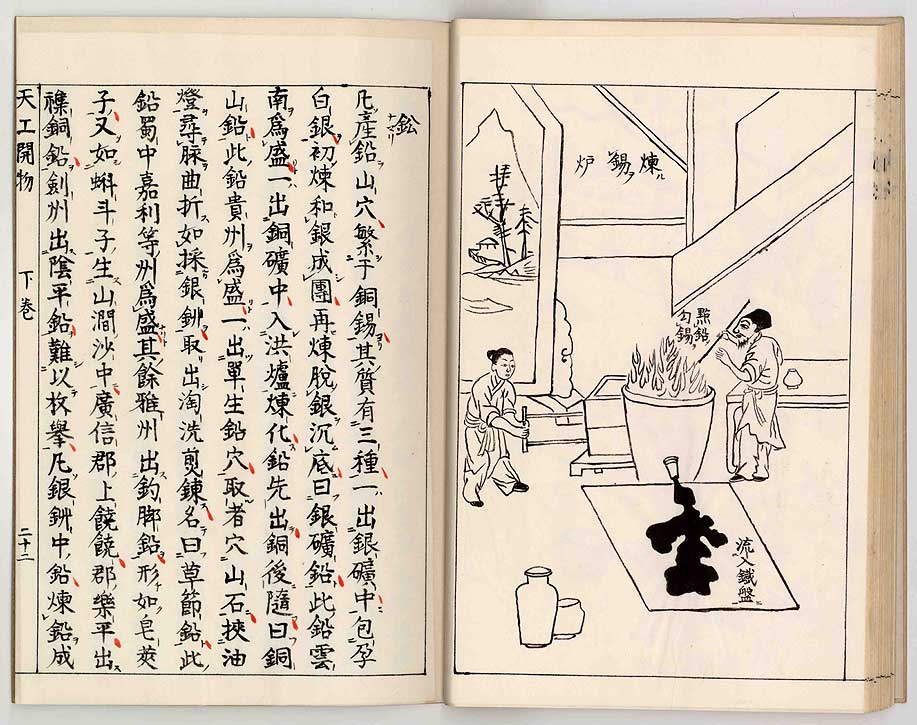 煉錫炉
點鉛
勾錫
流入鐵盤
鈆
凡產鉛山穴繁于銅錫其質有三種一出銀礦中包孕
白銀初煉和銀成團再煉脫銀沉底曰銀礦鉛此鉛雲
南爲盛一出銅礦中入洪爐煉化鉛先出銅後隨曰銅
山鉛此鉛貴州爲盛一出單生鉛穴取者穴山石挾油
燈尋脉曲折如採銀鉚取出淘洗煎鍊名曰草節鉛此
鉛蜀中嘉利等州爲盛其餘雅州出釣脚鉛形如皂莢
子又如蝌斗子生山澗沙中廣信郡上饒饒郡樂平出
襍銅鉛劍州出陰平鉛難以枚舉凡銀鉚中鉛煉鉛成
天工開物 下卷 二十二